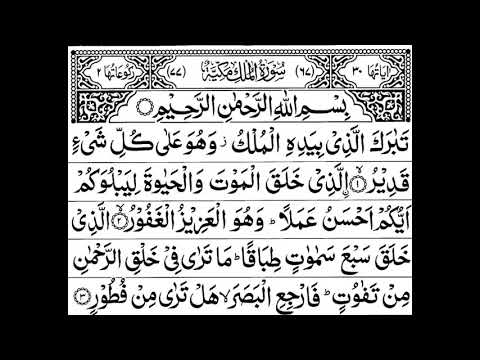 اٰيَاتُهَا ٣٠ (٦٧) سُوْرَةُ الْمُلْكِ مَكِّيَّةٌ (٧٧) رُكُوْعَاتُهَا ٢
بِسْمِ اللّٰهِ الرَّحْمٰنِ الرَّحِيْمِ
تَبٰرَكَ الَّذِىْ بِيَدِهِ الْمُلْكُ ز وَهُوَ عَلٰى كُلِّ شَىْءٍ
قَدِيْرُ ۙ﴿١﴾ اِۨلَّذِىْ خَلَقَ الْمَوْتَ وَالْحَيٰوةَ لِيَبْلُوَكُمْ
اَيُّكُمْ اَحْسَنُ عَمَلًا ؕ وَهُوَ الْعَزِيْزُ الْغَفُوْرُ ۙ﴿٢﴾ الَّذِىْ
خَلَقَ سَبْعَ سَمٰوٰتٍ طِبَاقًا ؕ مَا تَرٰى فِىْ خَلْقِ الرَّحْمٰنِ
مِنْ تَفٰوُتٍ ؕ فَارْجِعِ الْبَصَرَ ۙ هَلْ تَرٰى مِنْ فُطُوْرٍ ﴿٣﴾